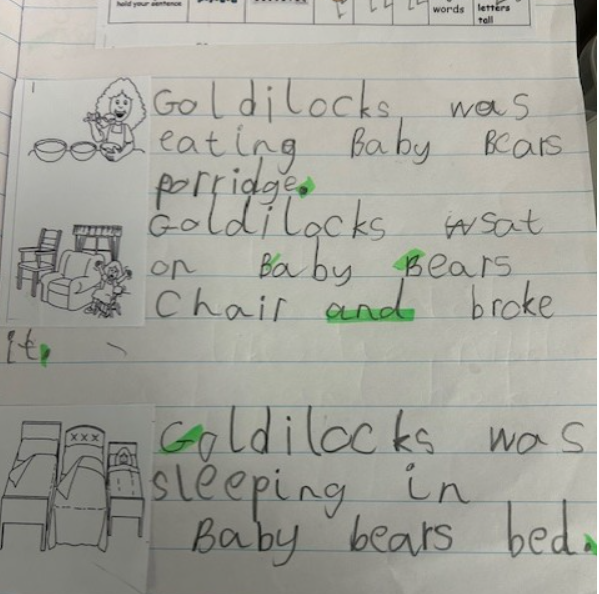 hold your sentence
words
letters
tall
Goldilocks was
eating Baby Bears
porridge.
Goldilocks wsat
on Baby Bears
Chair and broke
it.
xxx
Goldilocks was
sleeping in
Baby bears bed.